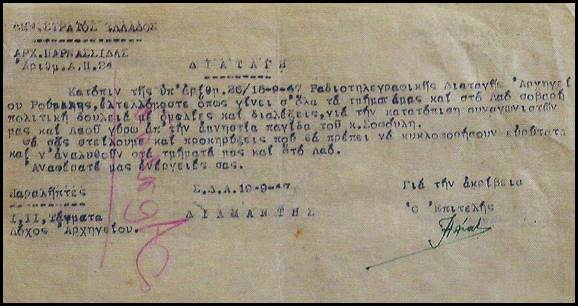 ΔΗΜ.ΣΤΡΑΤΟΣ ΕΛΛΑΔΟΣ
ΑΡΧ.ΠΑΡΝΑΣΣΙΔΑΣ
Ἀριθμ.Δ.Π.24
Δ Ι Α Τ Α Γ Η
Κατόπιν τῆς ὑπ'ἀριθμ.26/18-9-47 Ραδιοτηλεγραφικῆς Διαταγῆς Ἀρχηγεί
ου Ρούμελης, ἐντελλόμαστε ὅπως γίνει σ'ὅλα τά τμήματά μας καί στό Λαό σοβαρή
πολιτική δουλειά μέ ὁμιλίες καί διαλέξεις, γιά τήν κατατόπιση συναγωνιστῶν
μας καί Λαοῦ γύρω ἀπ'τήν ἀμνηστία παγίδα τοῦ κ.Σοφούλη.
Θά σᾶς στείλουμε καί προκηρύξεις πού θά πρέπει νά κυκλοφορήσουν εὐρύτατα
καί ν'ἀναλυθοῦν στά τμήματά μας καί στό Λαό.
Ἀναφέρατέ μας ἐνέργειές σας.
Παραλῆπτες
Ι,ΙΙ,Τάγματα
Λόχος Ἀρχηγείου.
Σ.Δ.Α.19-9-47
Δ Ι Α Μ Α Ν Τ Η Σ
Γιά τήν ἀκρίβεια
ὁ Ἐπιτελής